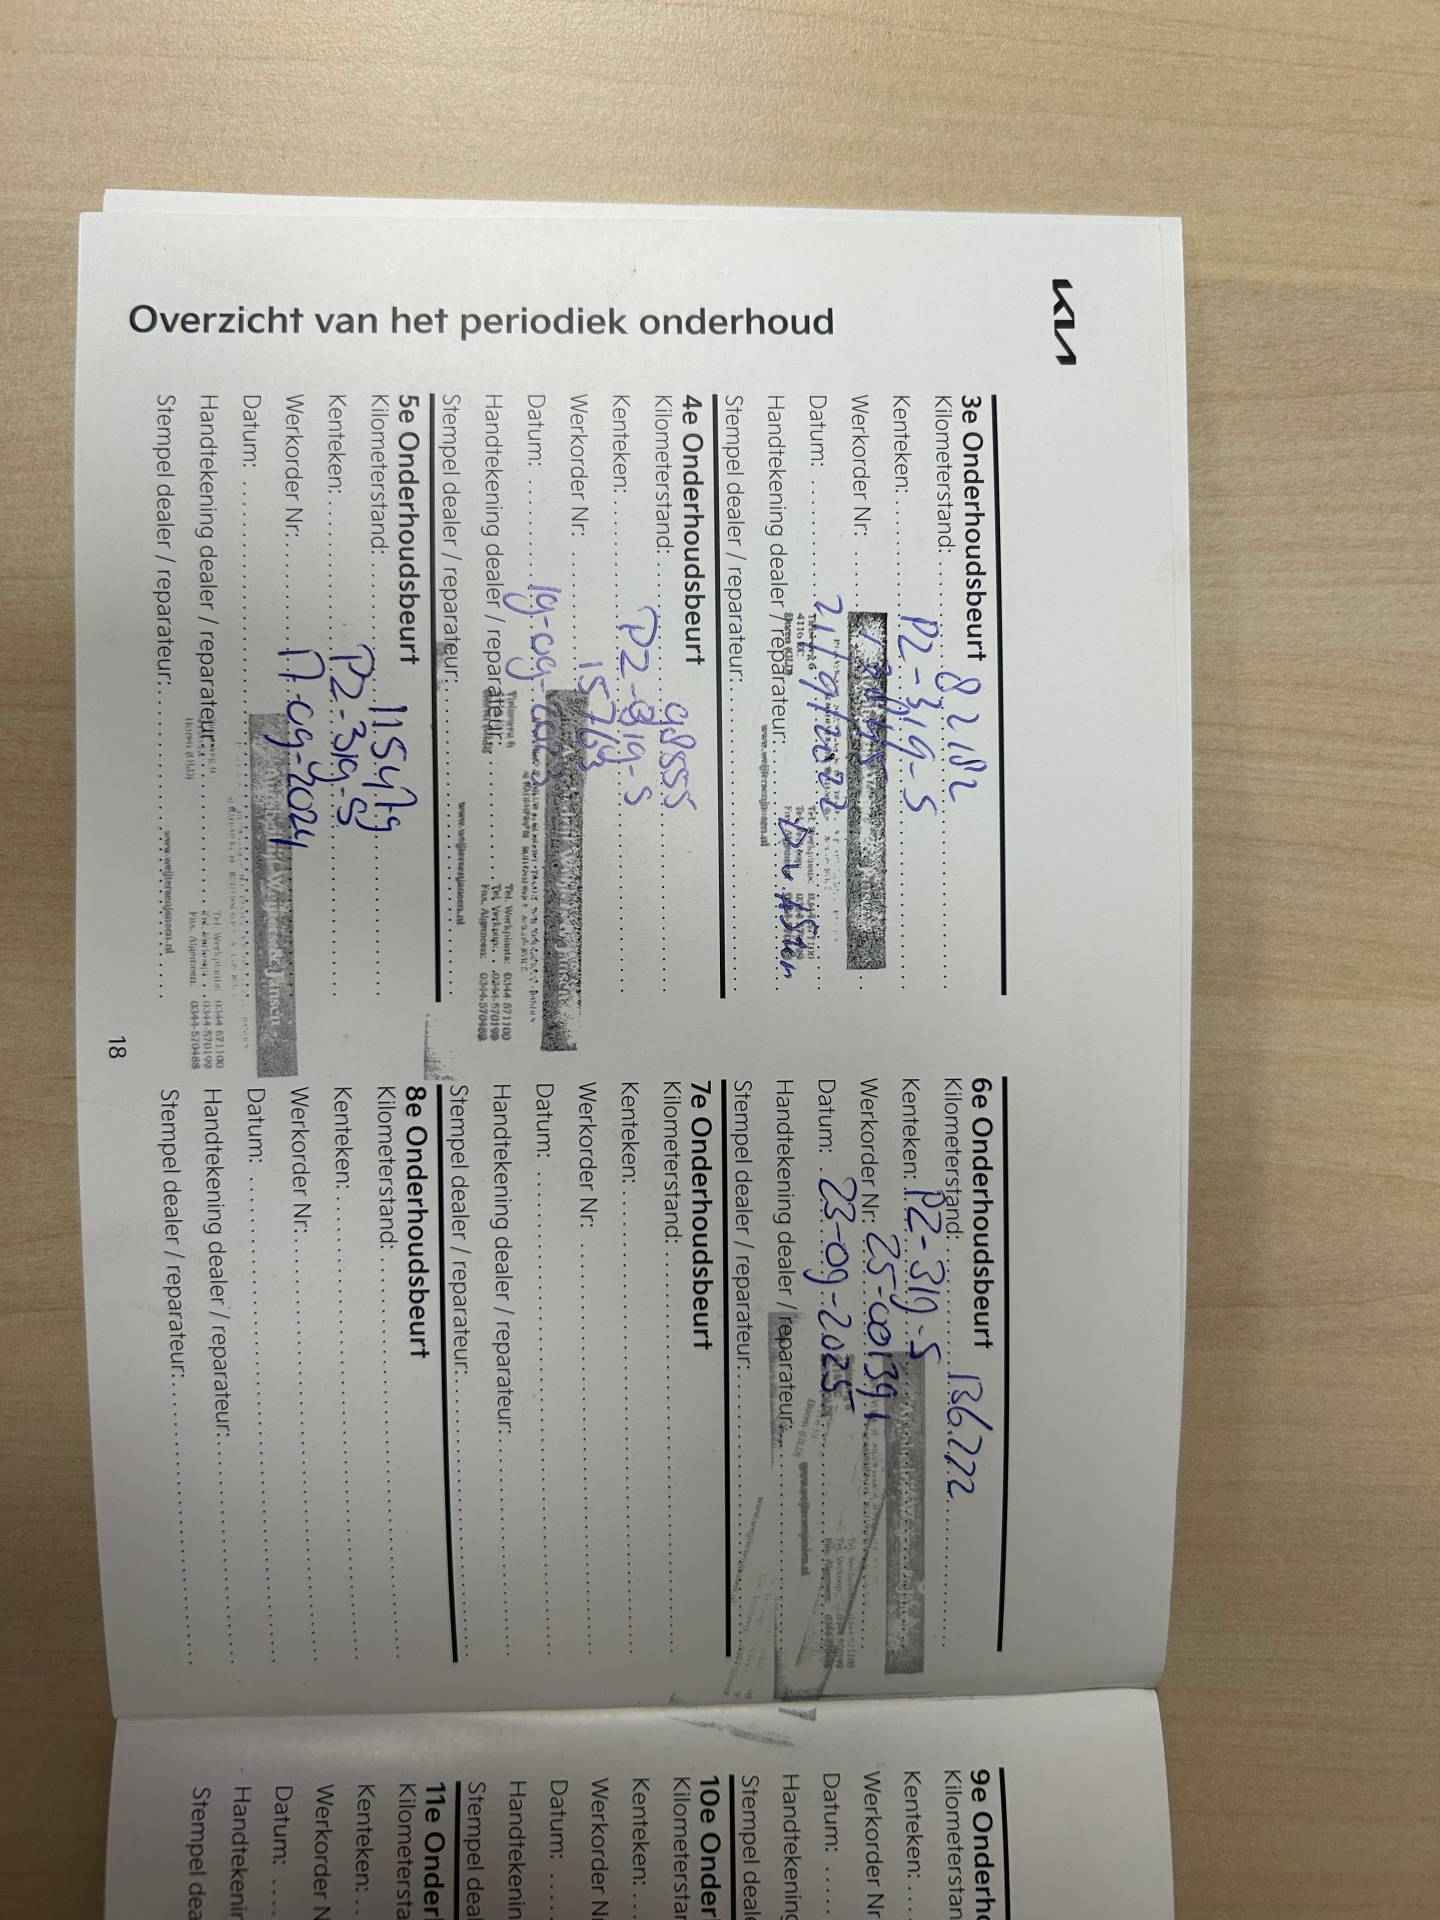 KIA
Overzicht van het periodiek onderhoud
3e Onderhoudsbeurt
Kilometerstand: 82182
Kenteken: PZ-319-S
Werkorder Nr:
Datum: 21/9/2022
Handtekening dealer / reparateur:
www.weijlersenjansen.nl
Stempel dealer / reparateur:
4e Onderhoudsbeurt
Kilometerstand: 98555
Kenteken: PZ-319-S
Werkorder Nr: 15768
Datum: 19-09-
Tel. Werkplaats: 0344 571100
0344-570199
Handtekening dealer / reparateur:
Fax. Algemeen: 0344-570488
www.weijlersenjansen.nl
Stempel dealer / reparateur:
5e Onderhoudsbeurt
Kilometerstand: 115479
Kenteken: PZ-319-S
Werkorder Nr: 17-09-2024
Datum:
Tel. Werkplaats: 0344 571100
0344-570199
Handtekening dealer / reparateur:
Fax. Algemeen: 0344-570488
www.weijlersenjansen.nl
Stempel dealer / reparateur:
18
6e Onderhoudsbeurt
Kilometerstand: 136.722
Kenteken: PZ-319-S
Werkorder Nr: 25-001391
Datum: 23-09-2025
Handtekening dealer / reparateur:
Stempel dealer / reparateur:
7e Onderhoudsbeurt
Kilometerstand:
Kenteken:
Werkorder Nr:
Datum:
Handtekening dealer / reparateur:
Stempel dealer / reparateur:
8e Onderhoudsbeurt
Kilometerstand:
Kenteken:
Werkorder Nr:
Datum:
Handtekening dealer / reparateur:
Stempel dealer / reparateur:
9e Onderho
Kilometerstan
Kenteken:
Werkorder Nr
Datum:
Handtekening
Stempel deale
10e Onder
Kilometerstar
Kenteken:
Werkorder N
Datum:
Handtekenin
Stempel deal
11e Onder
Kilometersta
Kenteken:
Werkorder N
Datum:
Handtekenin
Stempel dea